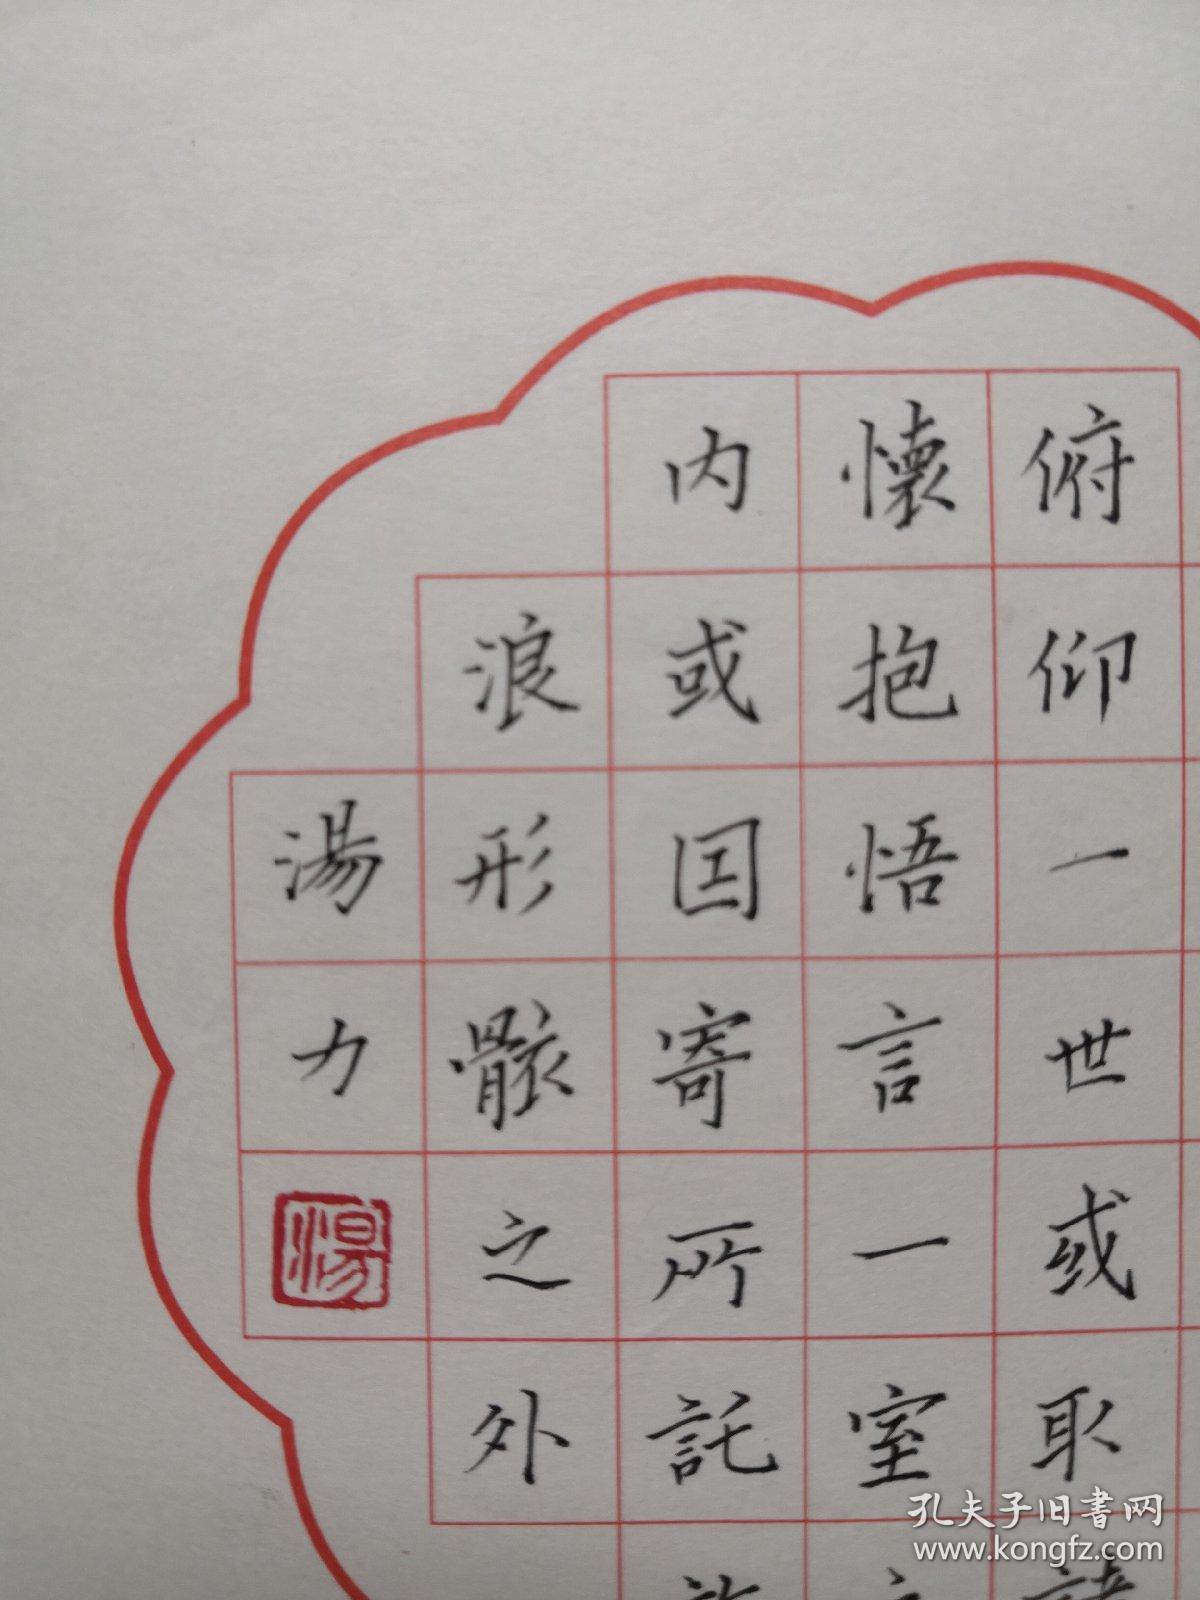 俯仰一世或取
懷抱悟言一室
内或因寄所託
浪形骸之外
湯力
湯
孔夫子旧书网
www.kongfz.com